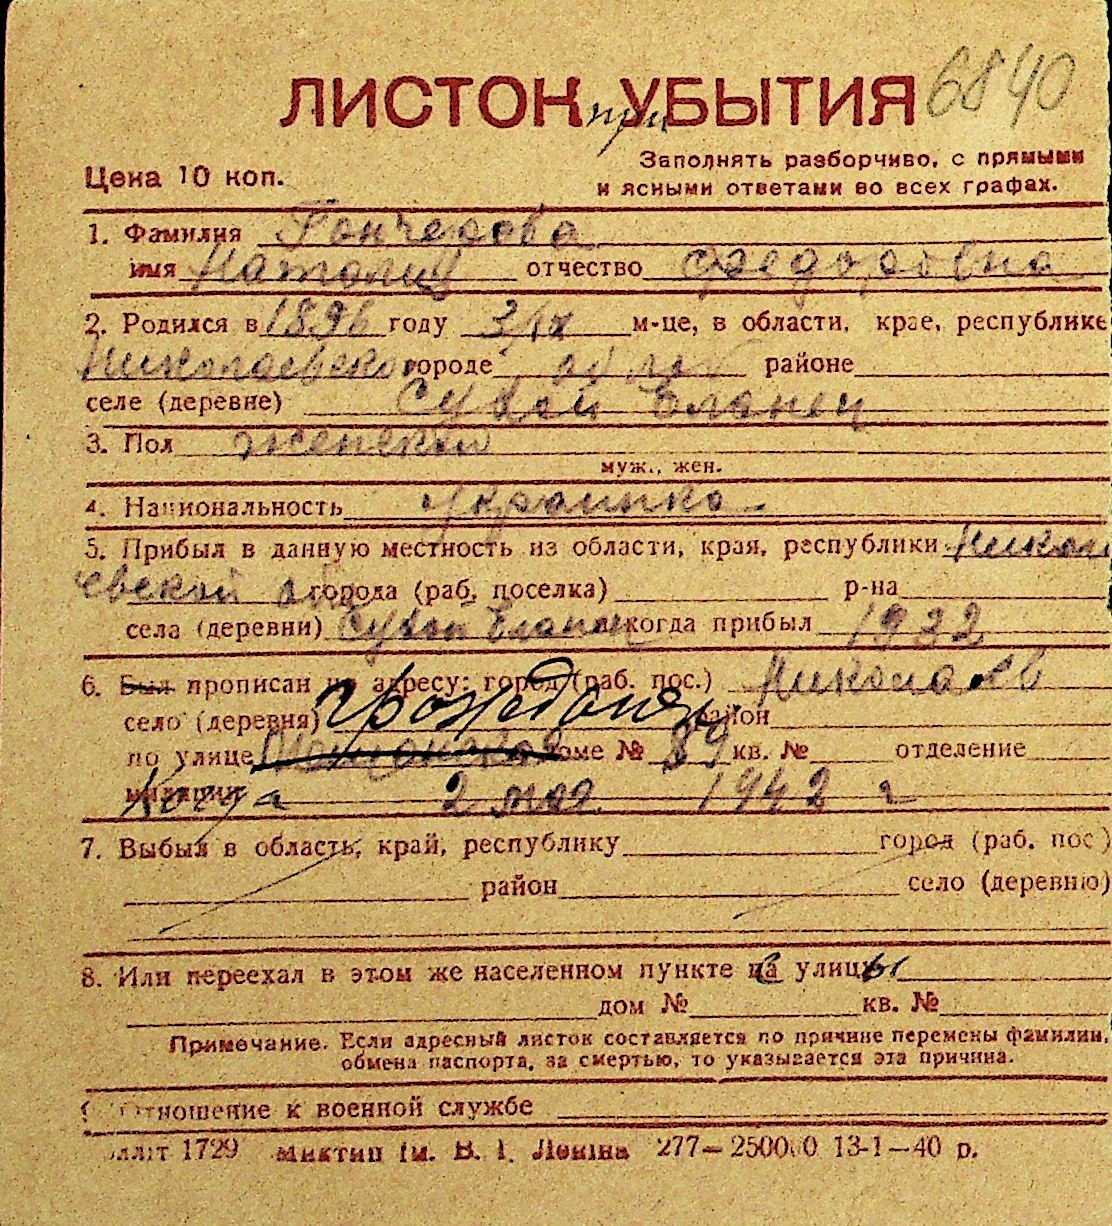 6840
ЛИСТОК при УБЫТИЯ
Цена 10 коп.
Заполнять разборчиво, с прямыми
и ясными ответами во всех графах.
1. Фамилия Гончерова
имя Наталия отчество Федоровна
2. Родился в 1896 году 31/х м-це, в области, крае, республике
Николаевско городе обл районе
селе (деревне) Сухой Еланец
3. Пол женский
муж., жен.
4. Национальность Украинка
5. Прибыл в данную местность из области, края, республики Никола
евской обл города (раб. поселка) р-на
села (деревни) Сухой Еланец когда прибыл 1932
6. Был прописан по адресу: город (раб. пос.) Николаев
село (деревня) гражданка район
по улице доме № 89 кв. № отделение
милиции Когда 2 мая 1942 г
7. Выбыл в область, край, республику город (раб. пос)
район село (деревню)
8. Или переехал в этом же населенном пункте с улицы
дом № кв. №
Примечание. Если адресный листок составляется по причине перемены фамилии,
обмена паспорта, за смертью, то указывается эта причина.
9. Отношение к военной службе
олліт 1729 Миктип ім. В. І. Леніна 277—250000 13-1—40 р.